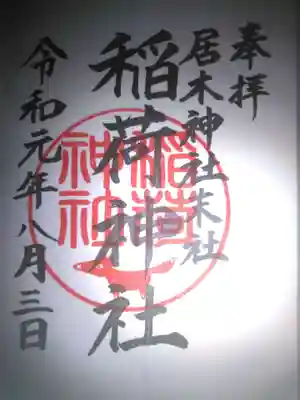 奉拝
居木神社末社
稲荷神社
令和元年八月三日
稲荷
神社